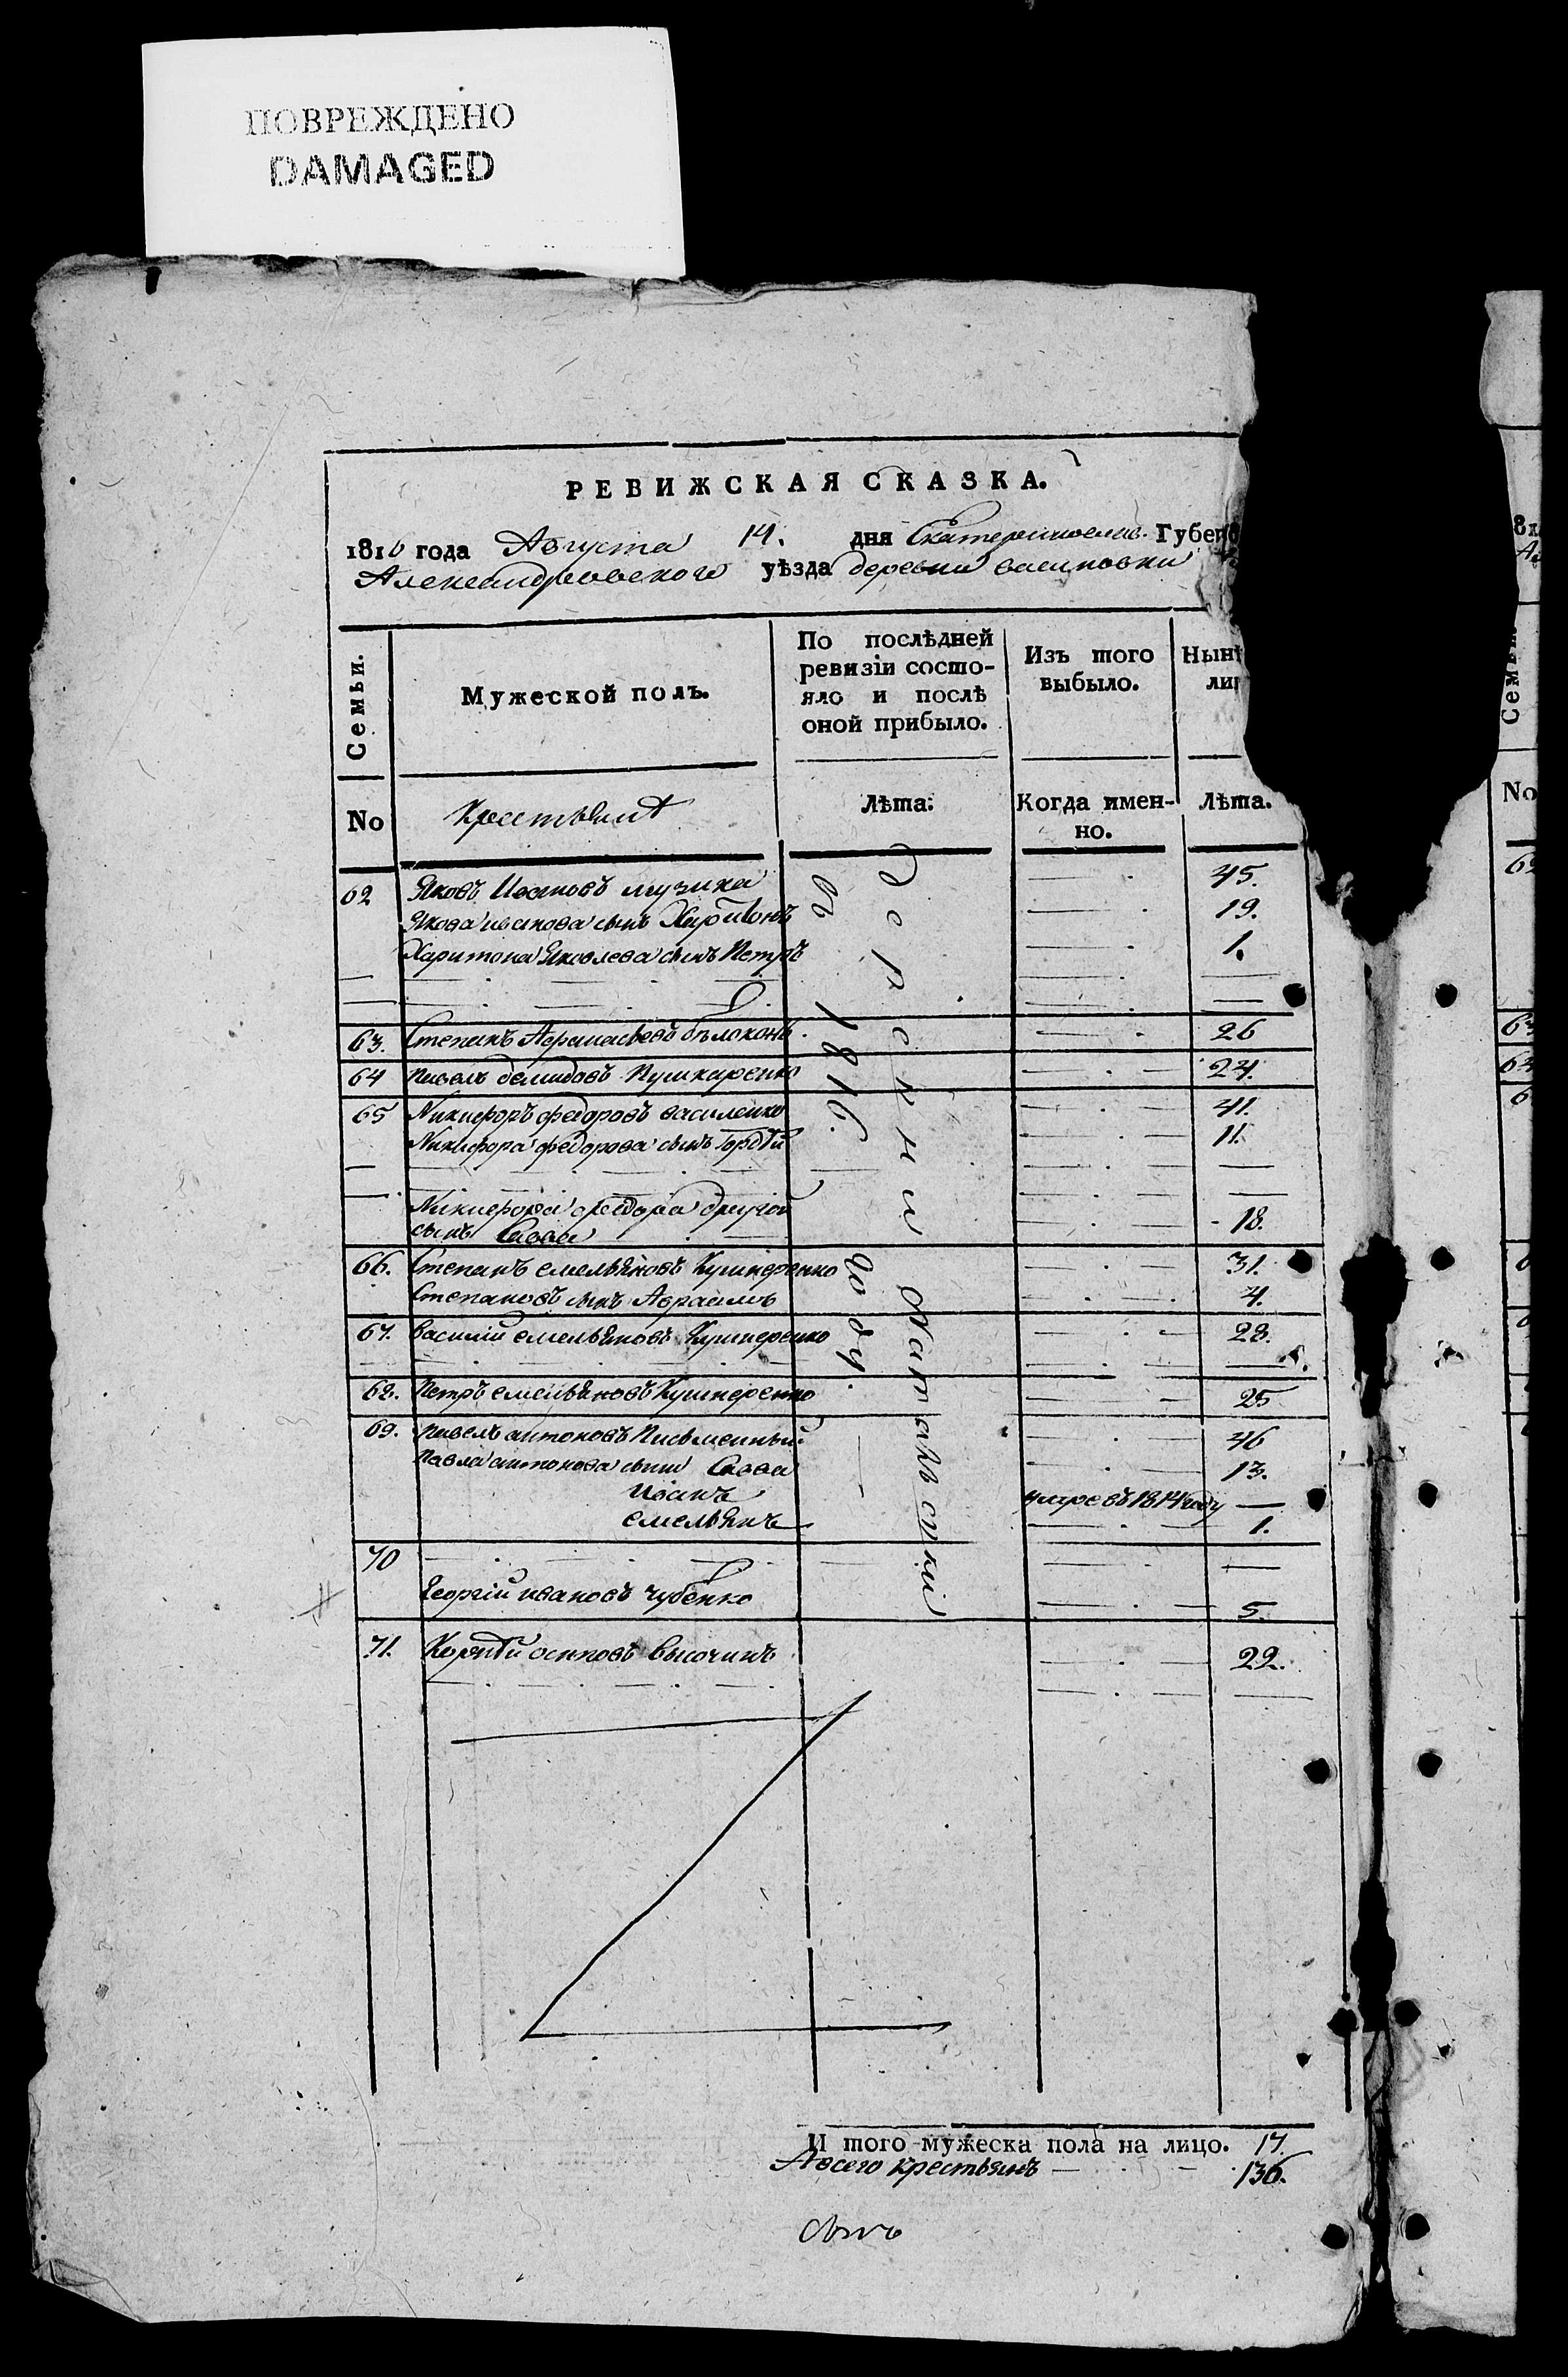 ПОВРЕЖДЕНО
DAMAGED
РЕВИЖСКАЯ СКАЗКА.
1816 года Августа 14. дня Екатеринослав. Губер
Александровского уѣзда деревни
Семьи.
Мужеской полъ.
По послѣдней ревизіи состо-
яло и послѣ
оной прибыло.
Изъ того
выбыло.
Нын
ли
No
Крестьянѣ
Лѣта.
Когда имен-
но.
Лѣта.
62 Яковъ Ивановъ музика 45.
Якова иванова сынъ Харитонъ 19.
Харитона Яковлева сынъ Петръ 1.
63. Степанъ Афанасьевъ бѣлоконь 26
64 Павелъ демидовъ Пушкаренко 24.
65 Никифоръ федоровъ василенко 41.
Никифора федорова сынъ Гордѣй 11.
Никифора федора другой
сынъ Савва 18.
66. Степанъ емельяновъ Кушнеренко 31.
Степановъ сынъ Авраамъ 4.
67. Василий емельяновъ Кушнеренко 28.
68. Петръ емельяновъ Кушнеренко 25
69. Павелъ антоновъ Письменный 46
Павла антонова сыни Савва 13.
Иванъ умре въ 1814 году
емельянъ 1.
70
Георгій ивановъ чубенко 5.
71. Корнѣй осиповъ высочинъ 22.
въ 1816. году.
деревни
И того мужеска пола на лицо. 17.
Авсего крестьянъ 136.